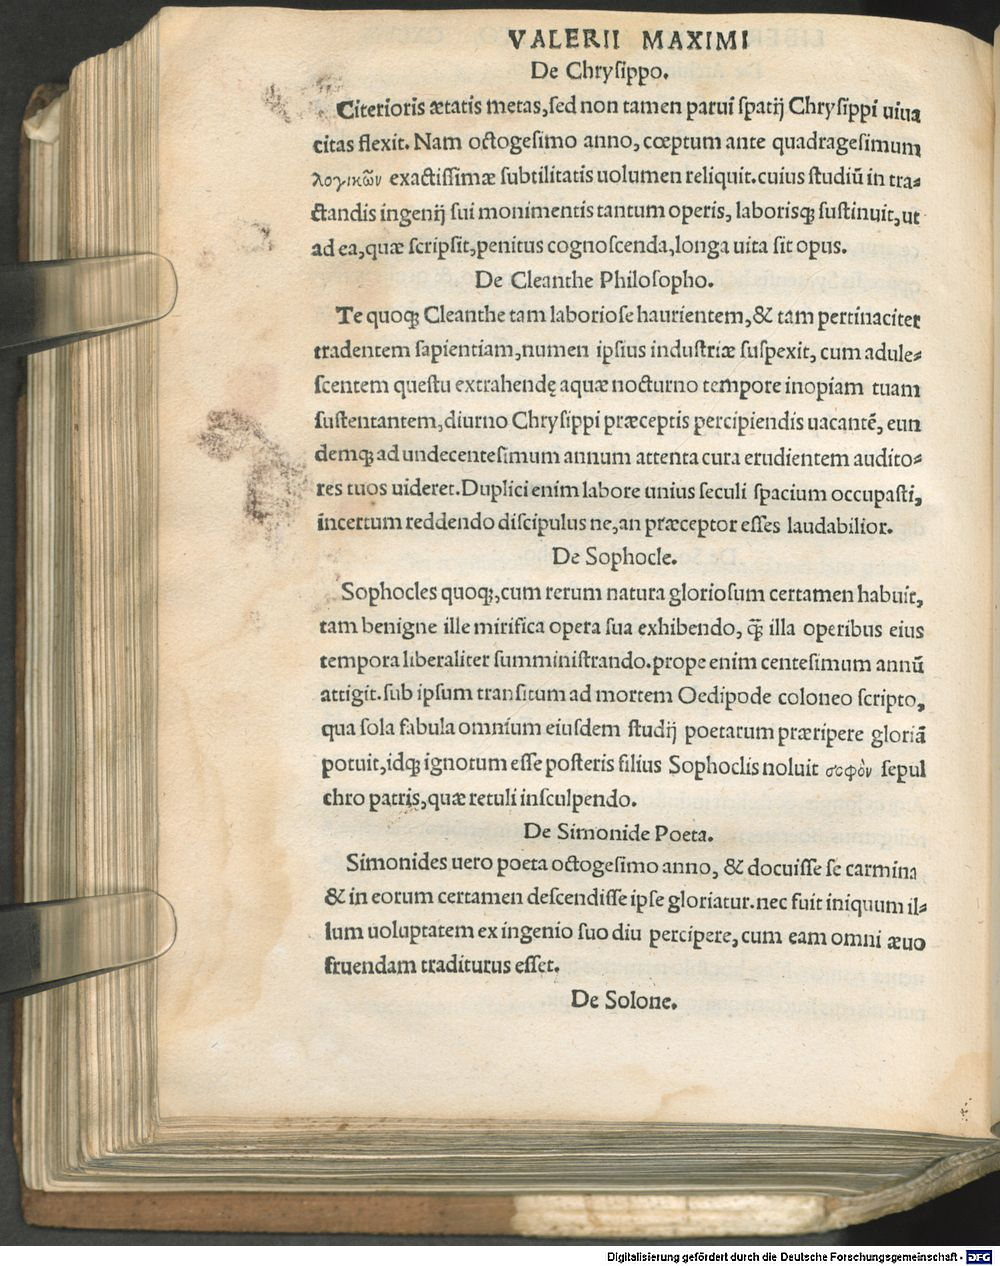 VALERII MAXIMI
De Chrysippo.
Citerioris ætatis metas, sed non tamen parui spatij Chrysippi uiua
citas flexit. Nam octogesimo anno, cœptum ante quadragesimum
λογικῶν exactissimæ subtilitatis uolumen reliquit. cuius studiū in tra-
ctandis ingenij sui monimentis tantum operis, laborisqꝫ sustinuit, ut
ad ea, quæ scripsit, penitus cognoscenda, longa uita sit opus.
De Cleanthe Philosopho.
Te quoqꝫ Cleanthe tam laboriose haurientem, & tam pertinaciter
tradentem sapientiam, numen ipsius industriæ suspexit, cum adule-
scentem questu extrahendę aquæ nocturno tempore inopiam tuam
sustentantem, diurno Chrysippi præceptis percipiendis uacantē, eun
demqꝫ ad undecentesimum annum attenta cura erudientem audito-
res tuos uideret. Duplici enim labore unius seculi spacium occupasti,
incertum reddendo discipulus ne, an præceptor esses laudabilior.
De Sophocle.
Sophocles quoqꝫ, cum rerum natura gloriosum certamen habuit,
tam benigne ille mirifica opera sua exhibendo, q̃ꝫ illa operibus eius
tempora liberaliter sumministrando. prope enim centesimum annū
attigit. sub ipsum transitum ad mortem Oedipode coloneo scripto,
qua sola fabula omnium eiusdem studij poetarum præripere gloriā
potuit, idqꝫ ignotum esse posteris filius Sophoclis noluit σοφὸν sepul
chro patris, quæ retuli insculpendo.
De Simonide Poeta.
Simonides uero poeta octogesimo anno, & docuisse se carmina
& in eorum certamen descendisse ipse gloriatur. nec fuit iniquum il-
lum uoluptatem ex ingenio suo diu percipere, cum eam omni æuo
fruendam traditurus esset.
De Solone.
Digitalisierung gefördert durch die Deutsche Forschungsgemeinschaft - DFG